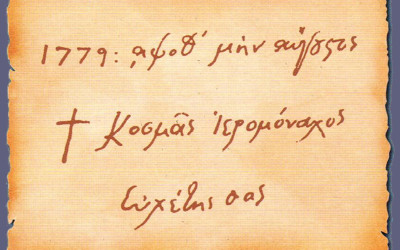 1779: ͵αψοθ′ μὴν αὔγȣςος
† Κοσμᾶς Ἱερομόναχος
Εὐχέτης σας